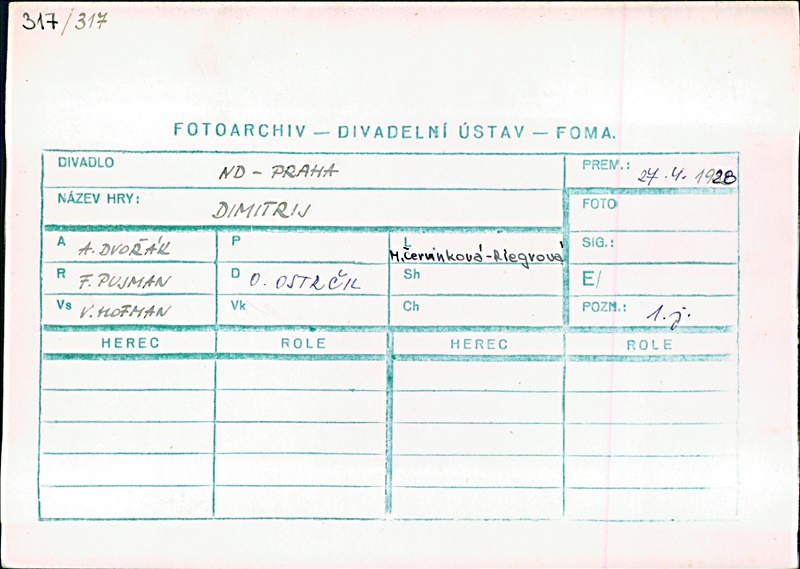 317/317
FOTOARCHIV — DIVADELNÍ ÚSTAV — FOMA.
DIVADLO ND - PRAHA PREM.: 27.4. 1928
NÁZEV HRY: DIMITRIJ FOTO
A A. DVOŘÁK P L M.Červinková-Riegrová SIG.:
R F. PUJMAN D O. OSTRČIL Sh E/
Vs V. HOFMAN Vk Ch POZN.: 1.j.
HEREC ROLE HEREC ROLE